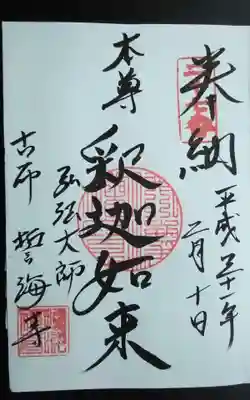 奉納
平成三十一年
二月十日
本尊
釈迦如来
弘法大師
古布 誓海寺